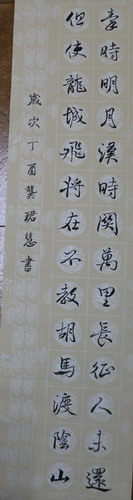 秦時明月漢時関萬里長征人未還
但使龍城飛將在不教胡馬渡陰山
歲次丁酉龔珺慧書